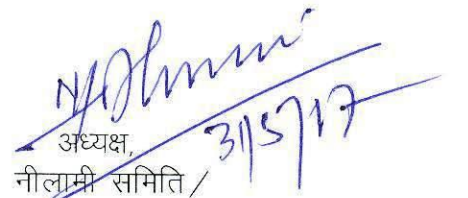 31/5/17
अध्यक्ष,
नीलामी समिति /